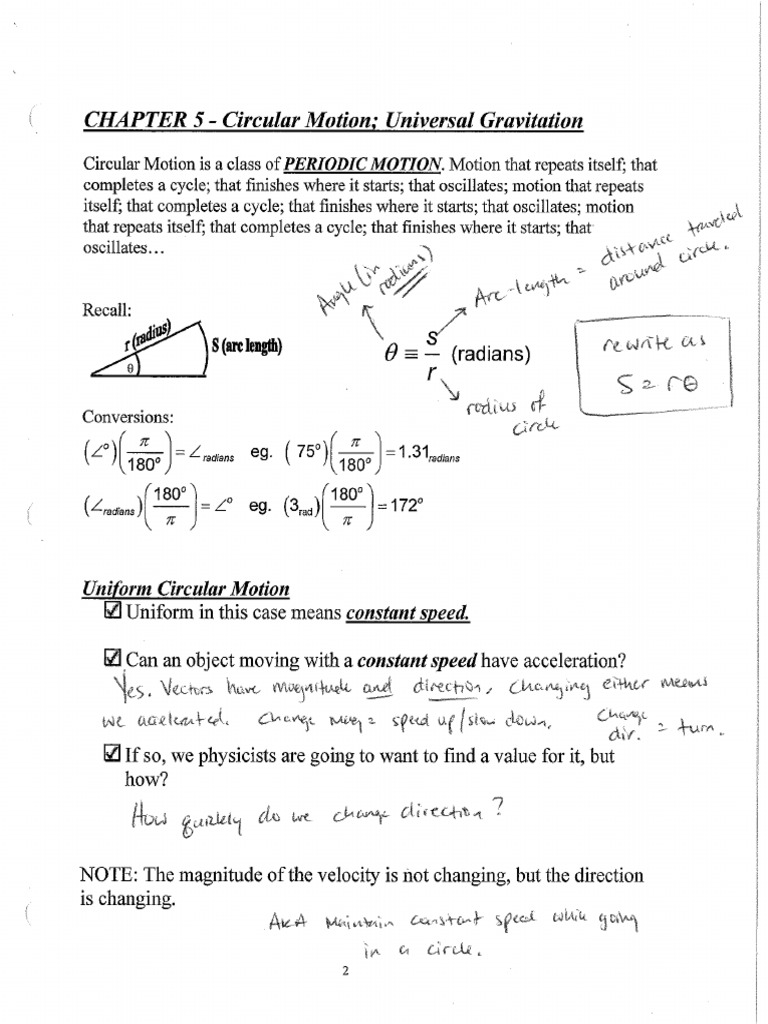 CHAPTER 5 - Circular Motion; Universal Gravitation
Circular Motion is a class of PERIODIC MOTION. Motion that repeats itself; that
completes a cycle; that finishes where it starts; that oscillates; motion that repeats
itself; that completes a cycle; that finishes where it starts; that oscillates; motion
that repeats itself; that completes a cycle; that finishes where it starts; that
oscillates…
Angle (in
radians)
Arc-length = distance traveled
around circle.
Recall:
r (radius)
S (arc length)
θ
θ ≡ s/r (radians)
radius of
circle
rewrite as
S = rθ
Conversions:
(∠°)(π/180°) = ∠radians eg. (75°)(π/180°) = 1.31radians
(∠radians)(180°/π) = ∠° eg. (3rad)(180°/π) = 172°
Uniform Circular Motion
☑ Uniform in this case means constant speed.
☑ Can an object moving with a constant speed have acceleration?
Yes. Vectors have magnitude and direction, changing either means
we accelerated. Change mag = speed up/slow down. Change dir. = turn.
☑ If so, we physicists are going to want to find a value for it, but
how?
How quickly do we change direction?
NOTE: The magnitude of the velocity is not changing, but the direction
is changing.
AKA Maintain constant speed while going
in a circle.
2